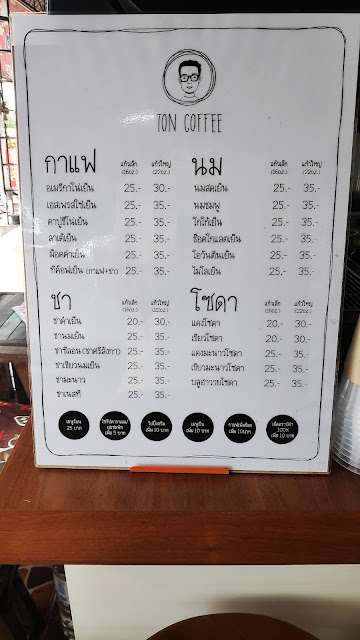 TON COFFEE
กาแฟ แก้วเล็ก (16oz.) แก้วใหญ่ (22oz.)
อเมริกาโน่เย็น 25.- 30.-
เอสเพรสโซ่เย็น 25.- 35.-
คาปูชิโน่เย็น 25.- 35.-
ลาเต้เย็น 25.- 35.-
ม็อคค่าเย็น 25.- 35.-
ทีค๊อฟเย็น (กาแฟ+ชา) 25.- 35.-
นม แก้วเล็ก (16oz.) แก้วใหญ่ (22oz.)
นมสดเย็น 25.- 35.-
นมชมพู 25.- 35.-
โกโก้เย็น 25.- 35.-
ช็อคโกแลตเย็น 25.- 35.-
โอวันตินเย็น 25.- 35.-
ไมโลเย็น 25.- 35.-
ชา แก้วเล็ก (16oz.) แก้วใหญ่ (22oz.)
ชาดำเย็น 20.- 30.-
ชานมเย็น 25.- 35.-
ชาซีลอน (ชาศรีลังกา) 25.- 35.-
ชาเขียวนมเย็น 25.- 35.-
ชามะนาว 25.- 35.-
ชาเนสที 25.- 35.-
โซดา แก้วเล็ก (16oz.) แก้วใหญ่ (22oz.)
แดงโซดา 20.- 30.-
เขียวโซดา 20.- 30.-
แดงมะนาวโซดา 25.- 35.-
เขียวมะนาวโซดา 25.- 35.-
บลูฮาวายโซดา 25.- 35.-
เมนูร้อน
25 บาท
เพิ่ม 5 บาท
วิปปิ้งครีม
เพิ่ม 10 บาท
เมนูปั่น
เพิ่ม 10 บาท
เพิ่ม 10บาท
100%
เพิ่ม 10 บาท